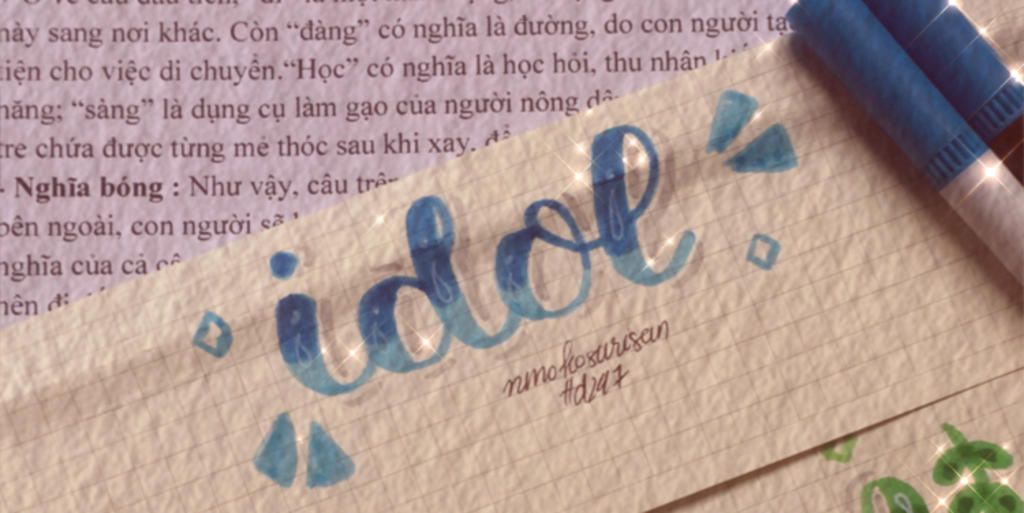 này sang nơi khác. Còn “đàng” có nghĩa là đường, do con người
tiện cho việc di chuyển.“Học” có nghĩa là học hỏi, thu nhận
năng; “sàng” là dụng cụ làm gạo của người nông
tre chứa được từng mẻ thóc sau khi xay.
- Nghĩa bóng : Như vậy, câu
bên ngoài, con người sẽ
nghĩa của cả
nên
idol
#d297